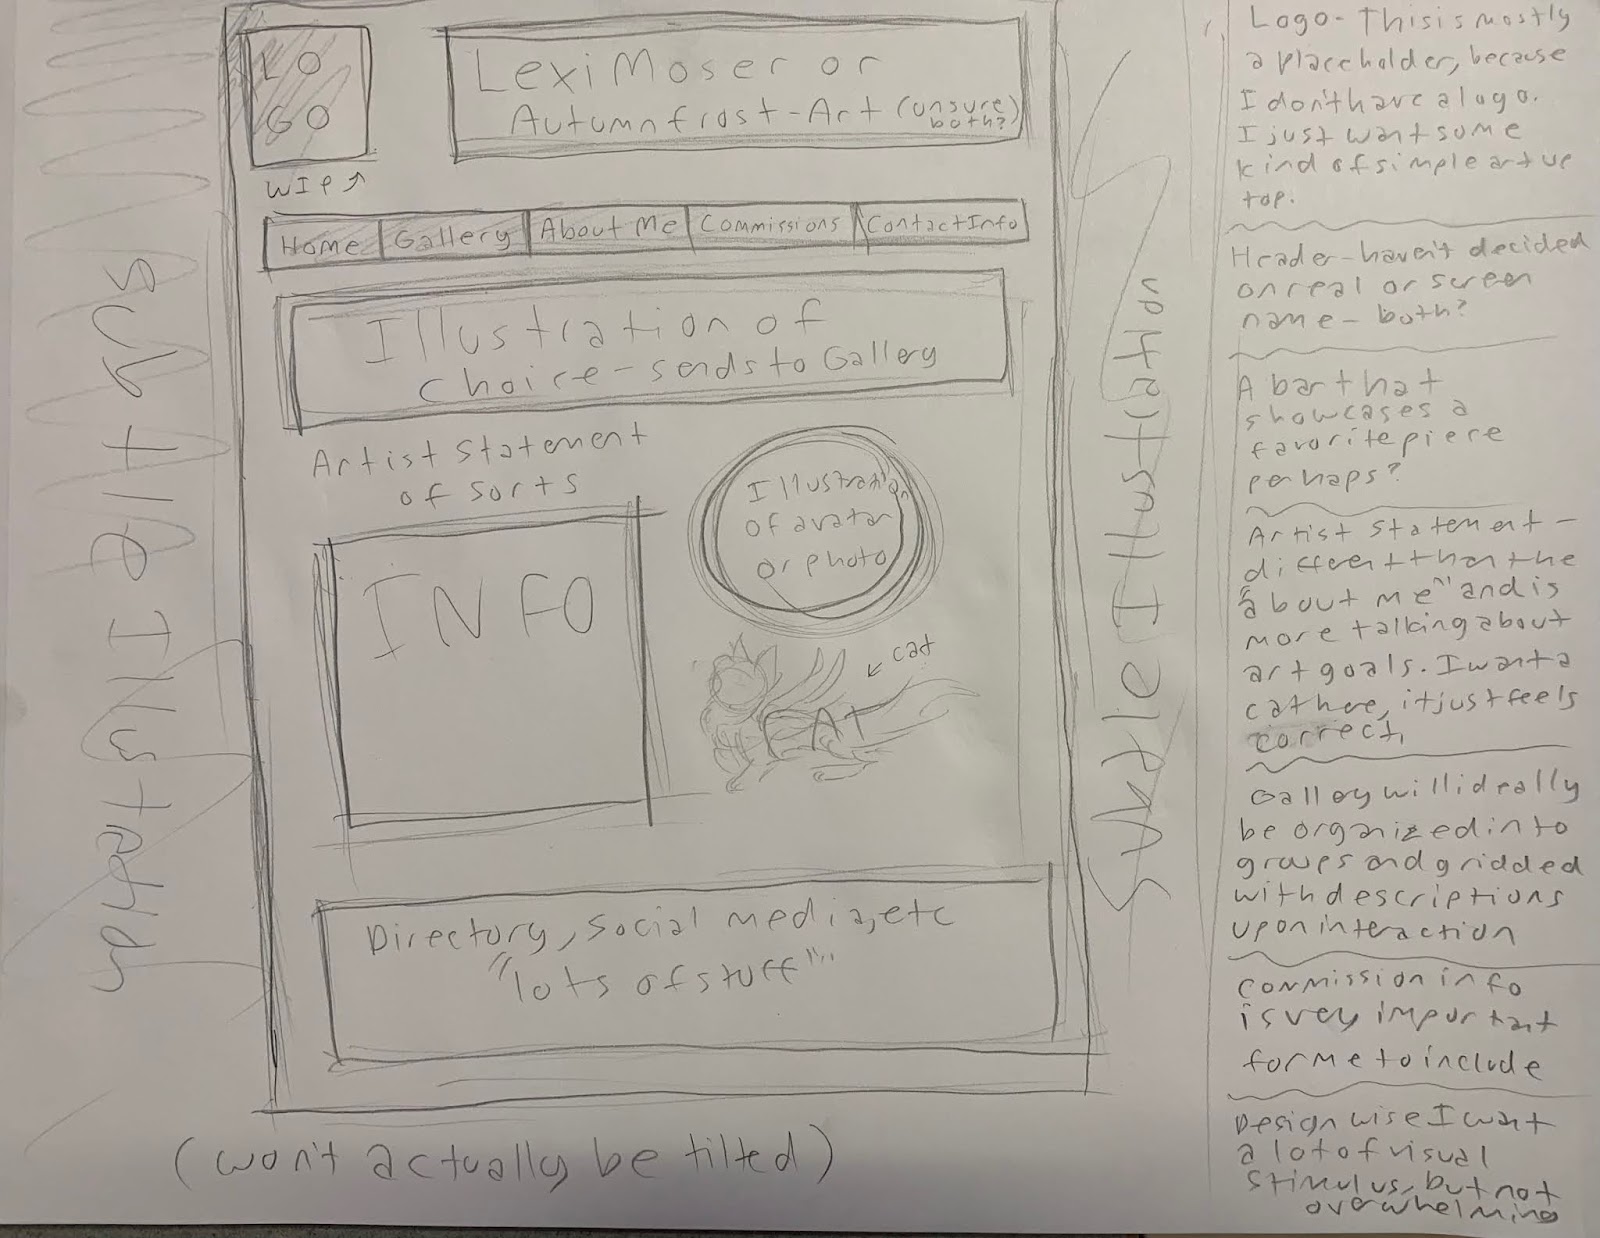 LO
GO
WIP↑
Lexi Moser or
Autumnfrost-Art (unsure both?)
Home
Gallery
About Me
Commissions
Contact Info
Illustration of
choice - sends to Gallery
Artist Statement
of sorts
INFO
Illustration
of avatar
or photo
← cat
CAT
Directory, social media, etc
"lots of stuff"
(won't actually be tilted)
Subtle Illustration
Logo - This is mostly
a placeholder, because
I don't have a logo.
I just want some
kind of simple art up
top.
Header - haven't decided
on real or screen
name - both?
A bar that
showcases a
favorite piece
perhaps?
Artist Statement -
different than the
"about me" and is
more talking about
art goals. I want a
cat here, it just feels
correct.
Gallery will ideally
be organized into
groups and gridded
with descriptions
upon interaction
Commission info
is very important
for me to include
Design wise I want
a lot of visual
stimulus, but not
overwhelming